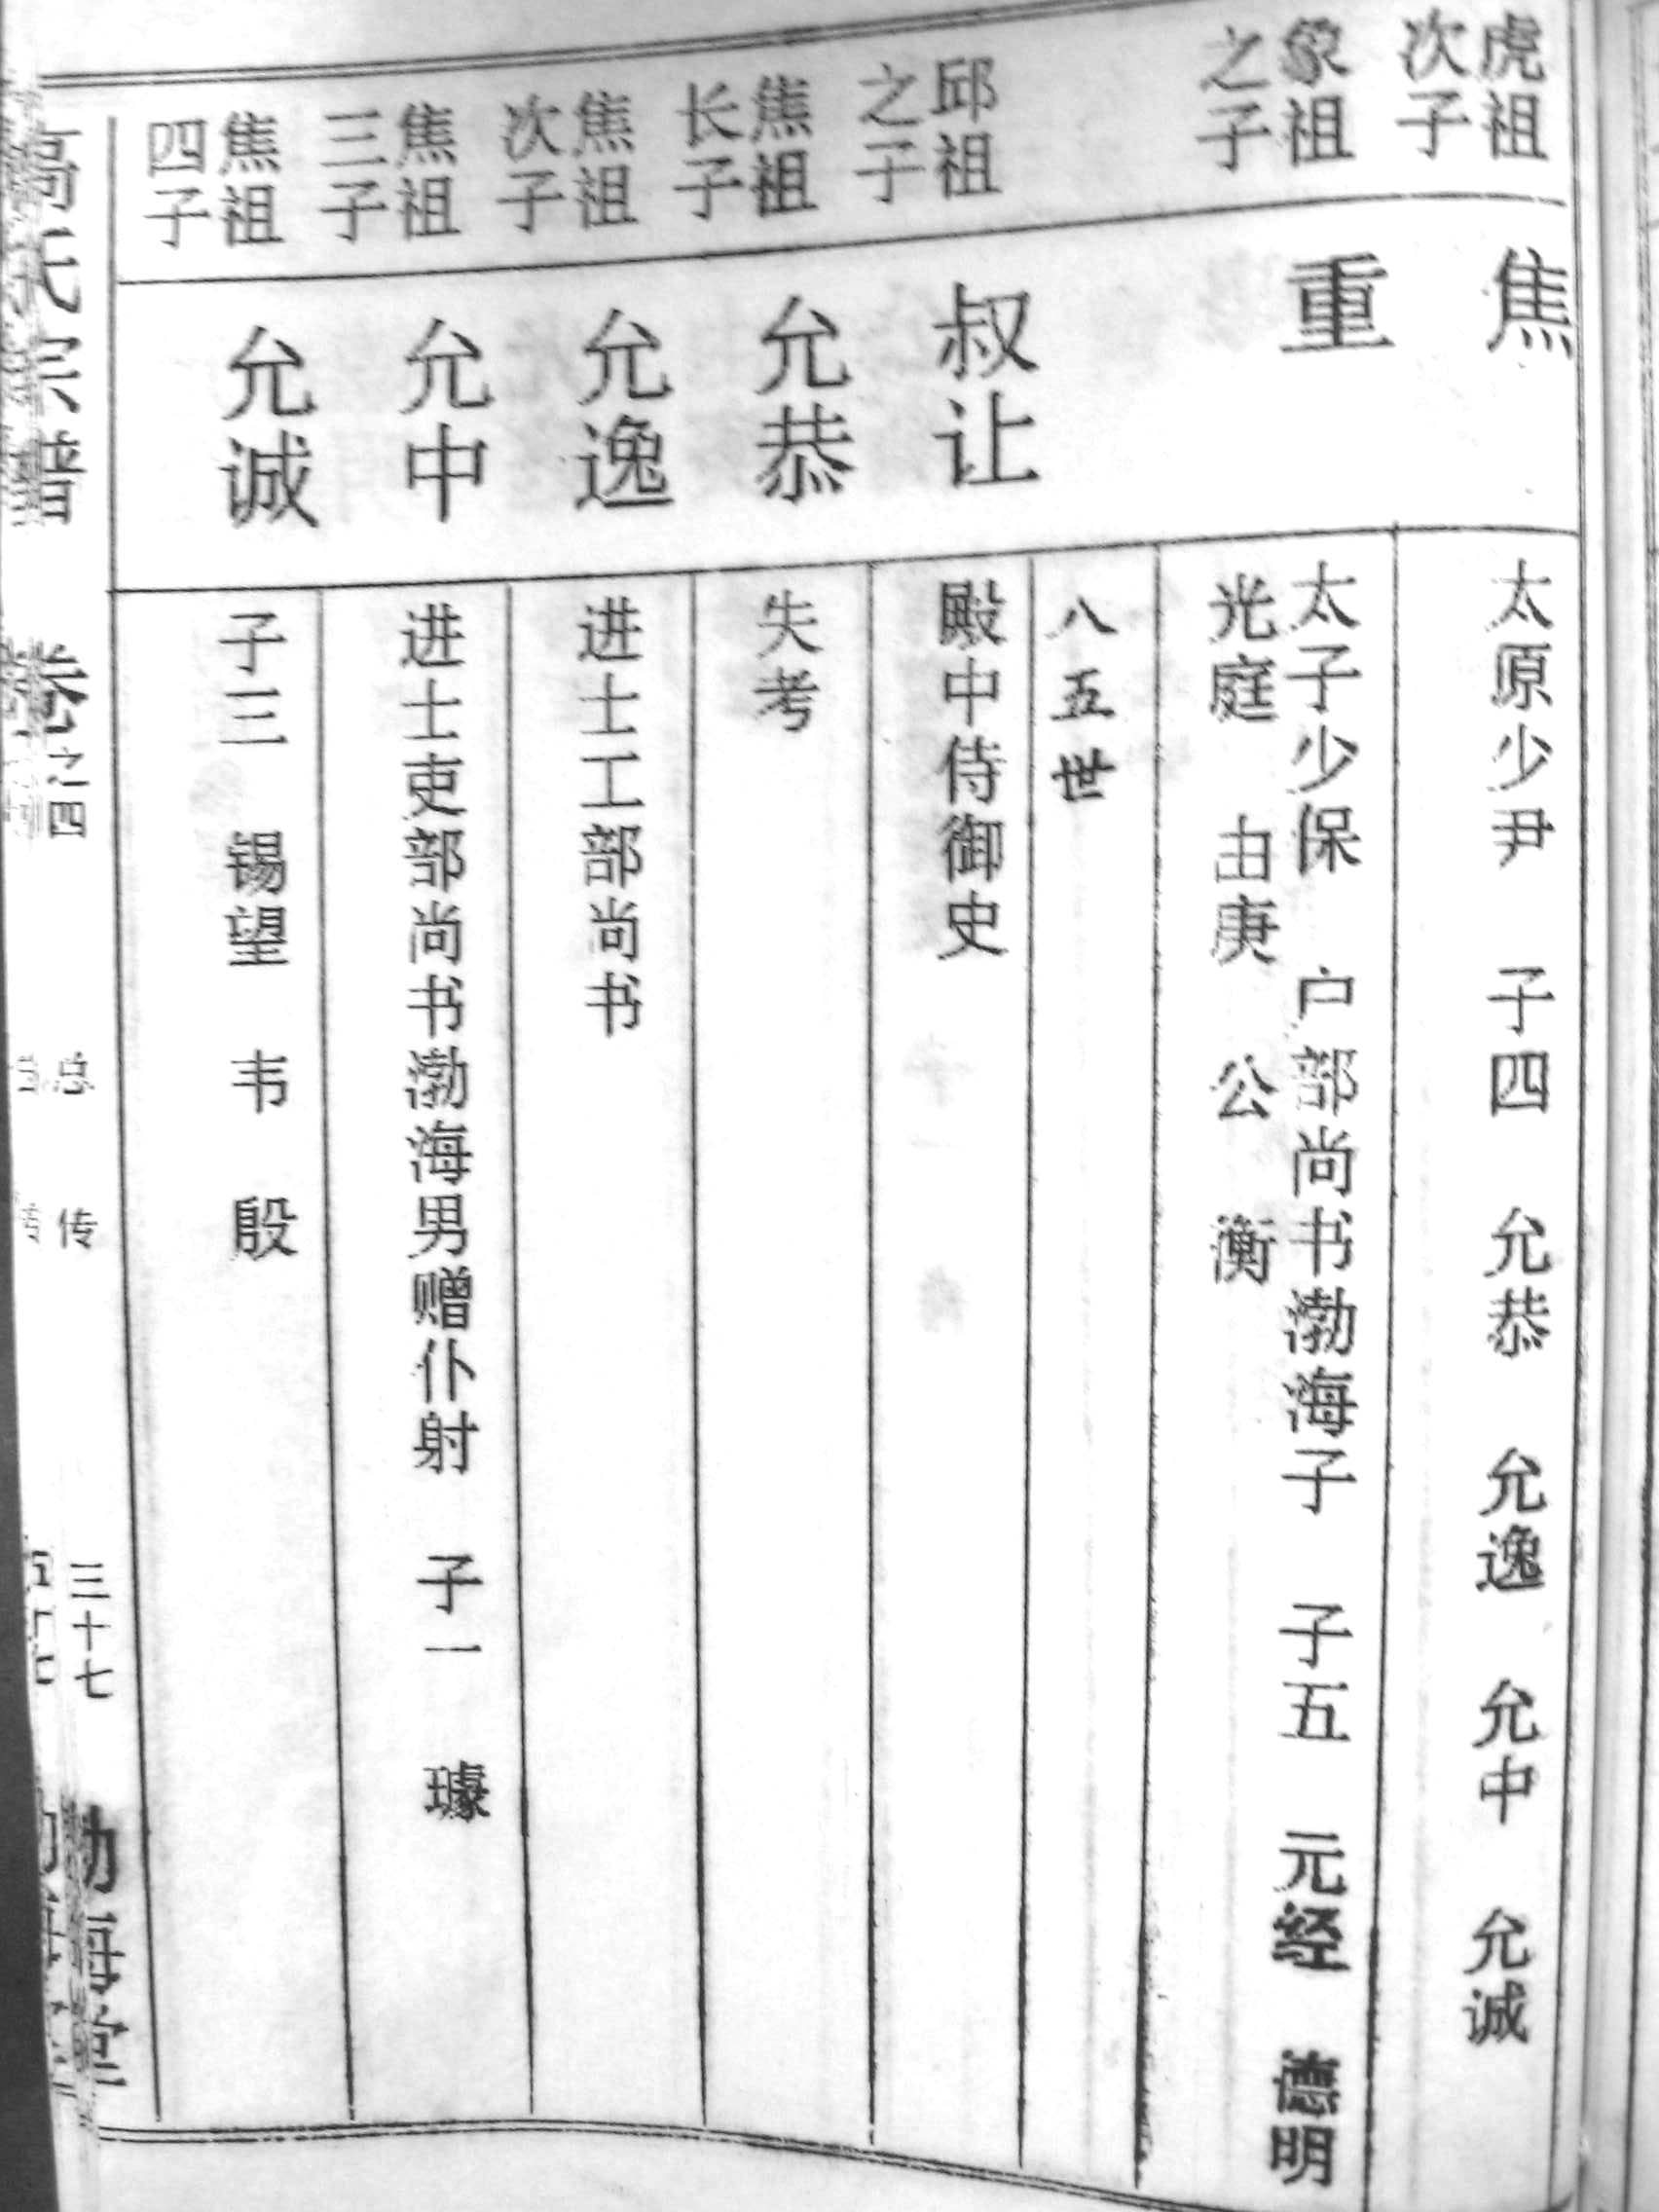 虎祖
次子
焦
太原少尹 子四 允恭 允逸 允中 允诚
象祖
之子
重
太子少保 户部尚书渤海子 子五 元经 德明
光庭 由庚 公 衡
八五世
邱祖
之子
叔让
殿中侍御史
焦祖
长子
允恭
失考
焦祖
次子
允逸
进士工部尚书
焦祖
三子
允中
进士吏部尚书渤海男赠仆射 子一 璩
焦祖
四子
允诚
子三 锡望 韦 殷
高氏宗谱 卷之四 总传 三十七 勃海堂